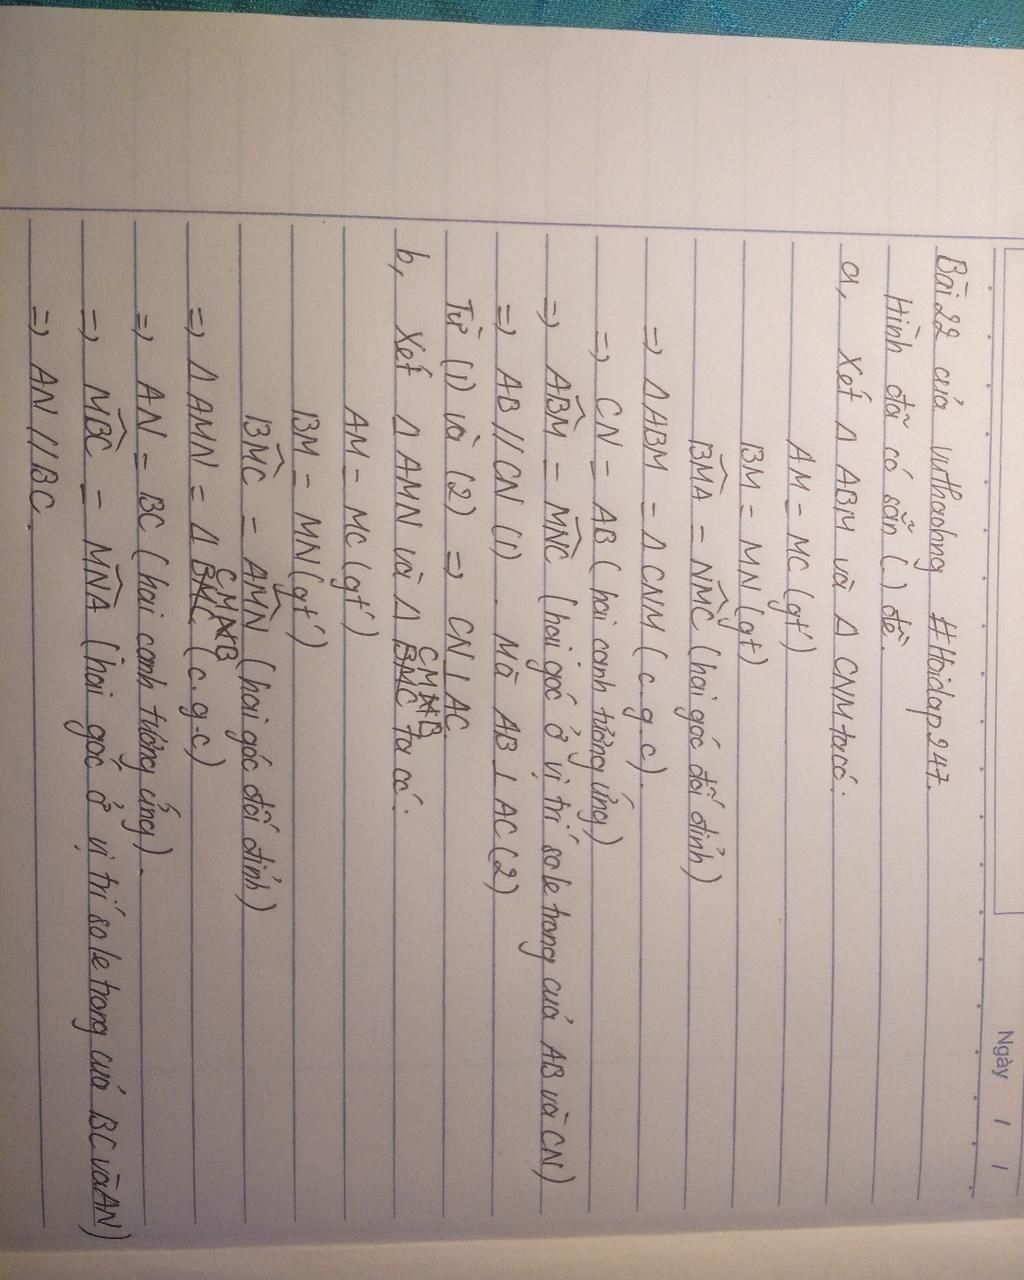 Ngày / /
Bài 22 của #Hoidap247.
Hình đã có sẵn (.) đề.
a, Xét Δ ABM và Δ CNM ta có:
AM = MC (gt)
BM = MN (gt)
BMA = NMC (hai góc đối đỉnh)
=> Δ ABM = Δ CNM (c.g.c).
=> CN = AB (hai cạnh tương ứng)
=> ABM = MNC (hai góc ở vị trí so le trong của AB và CN)
=> AB // CN (1). Mà AB ⊥ AC (2)
Từ (1) và (2) => CN ⊥ AC
b, Xét Δ AMN và Δ CMB ta có:
AM = MC (gt)
BM = MN (gt)
BMC = AMN (hai góc đối đỉnh)
=> Δ AMN = Δ CMB (c.g.c)
=> AN = BC (hai cạnh tương ứng).
=> MBC = MNA (hai góc ở vị trí so le trong của BC và AN)
=> AN // BC.